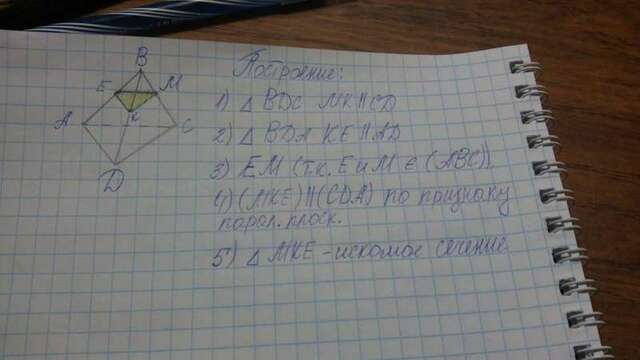 B
E M
A K C
D
Построение:
1) △ BDC MK || CD
2) △ BDA KE || AD
3) EM (т.к. E и M ∈ (ABC))
4) (MKE) || (CDA) по признаку
парал. плоск.
5) △ MKE - искомое сечение